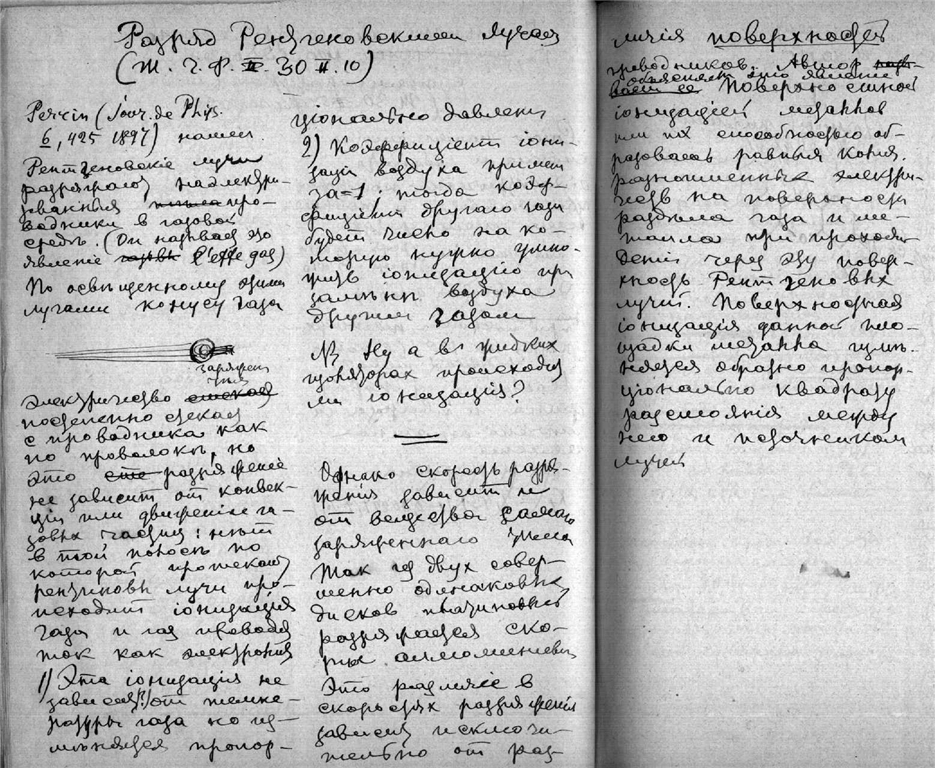 Разряд Рентгеновскими лучами
(Ж. Ч. Ф. III. 30 II. 10)
Perrin (Jour. de Phys.
6, 425 1897) нашел
Рентгеновскіе лучи
разряжают наэлектри-
зованныя про-
водники в газовой
средѣ. (Он назвал это
явленіе l'effe gas)
По освѣщенному этими
лучами конусу газа
заряжен
тѣла
электричество
постепенно стекает
с проводника как
по проволокѣ, но
это разряженіе
не зависит от конвек-
ціи или движенія га-
зовых частиц: нѣт
в той полосѣ по
которой протекают
рентгеновы лучи про-
исходит іонизація
газа и газ проводит
ток как электролит
1) Эта іонизація не
зависит(!) от темпе-
ратуры газа но из-
мѣняется пропор-
ціонально давленію
2) Коэффиціент іони-
заціи воздуха примем
за=1, тогда коэф-
фиціент другаго газа
будет число на ко-
торую нужно умно-
жить іонизацію при
замѣнѣ воздуха
другим газом
NB Ну а в жидких
происходит
ли іонизація?
Однако скорость разря-
женія зависит и
от вещества самаго
заряженнаго тѣла
Так из двух совер-
шенно одинаковых
дисков платиновый
разряжается ско-
рѣе алюминіеваго
Это различіе в
скоростях разряженія
зависит исключи-
тельно от раз-
личія поверхностей
проводников. Автор
объясняет это явленіе
поверхностной
іонизаціей металлов
или их способностью об-
разовать равныя колич.
разноименных электри-
честв на поверхности
раздѣла газа и ме-
талла при прохож-
деніи через эту повер-
хность Рентгеновых
лучей. Поверхностная
іонизація данной пло-
щадки металла измѣ-
няется обратно пропор-
ціонально квадрату
разстоянія между
нею и источником
лучей